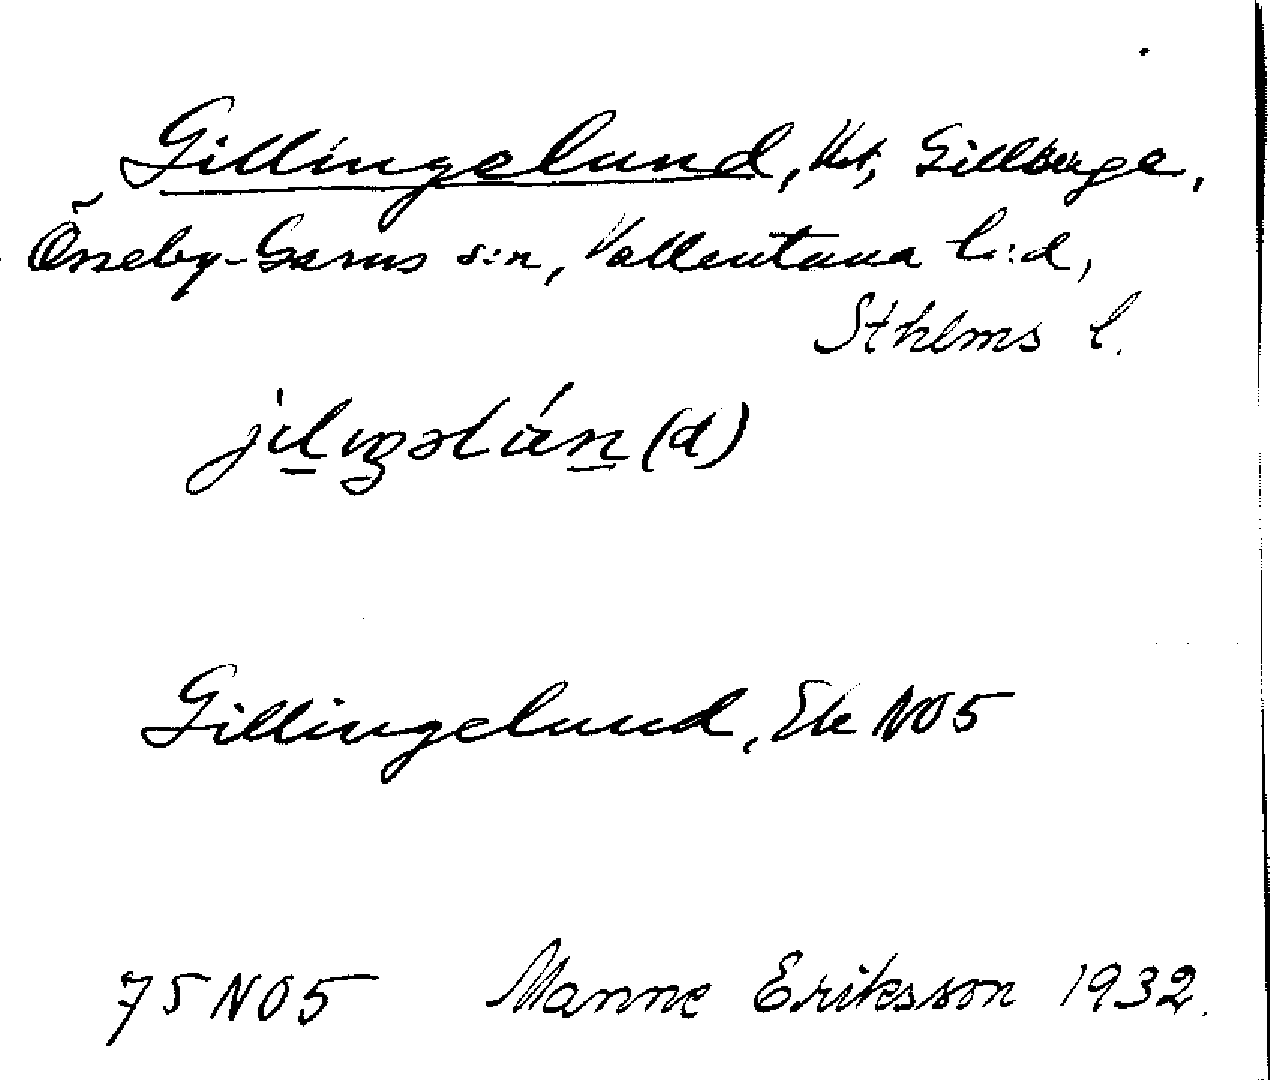 Gillingelund, Hst, Gillberga,
Össeby-Garns s:n, Vallentuna h:d,
Sthlms l.
Gillingelund, Ek NO5
75 NO5 Manne Eriksson 1932.